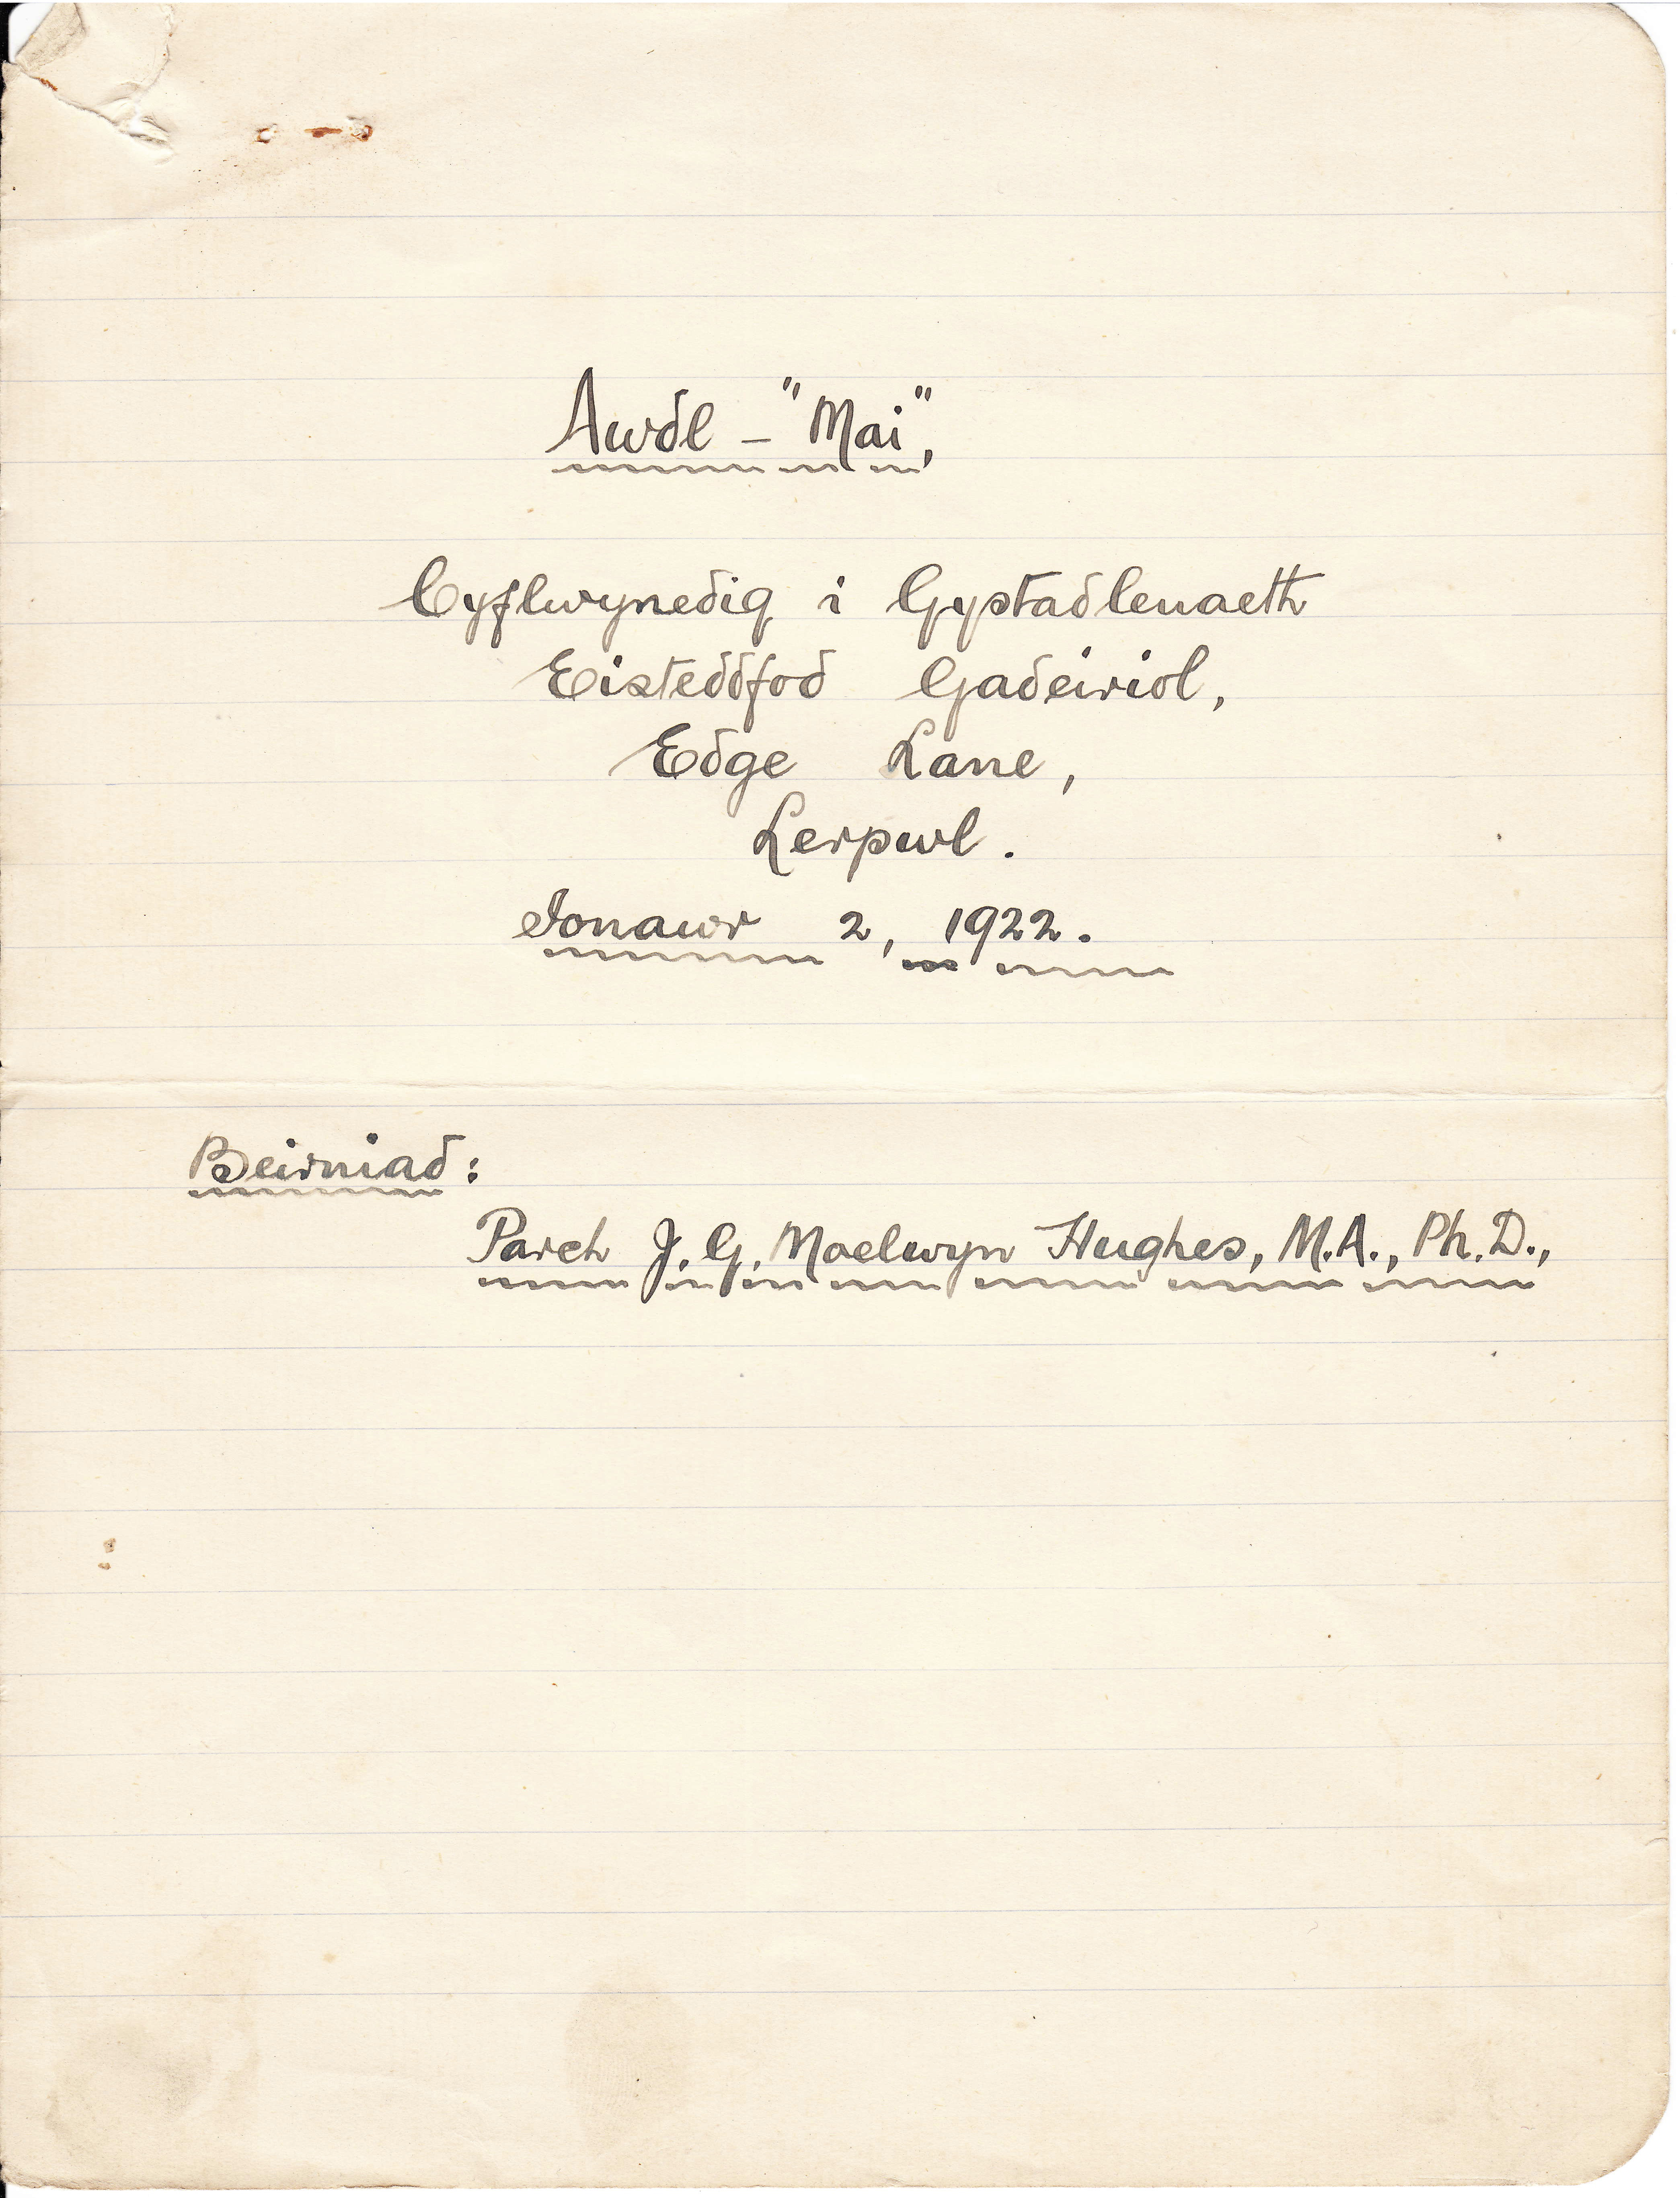 Awdl - "Mai",
Cyflwynedig i Gystadleuaeth
Eisteddfod Gadeiriol,
Edge Lane,
Lerpwl.
Ionawr 2, 1922.
Beirniad:
Parch J. G. Moelwyn Hughes, M.A., Ph.D.,